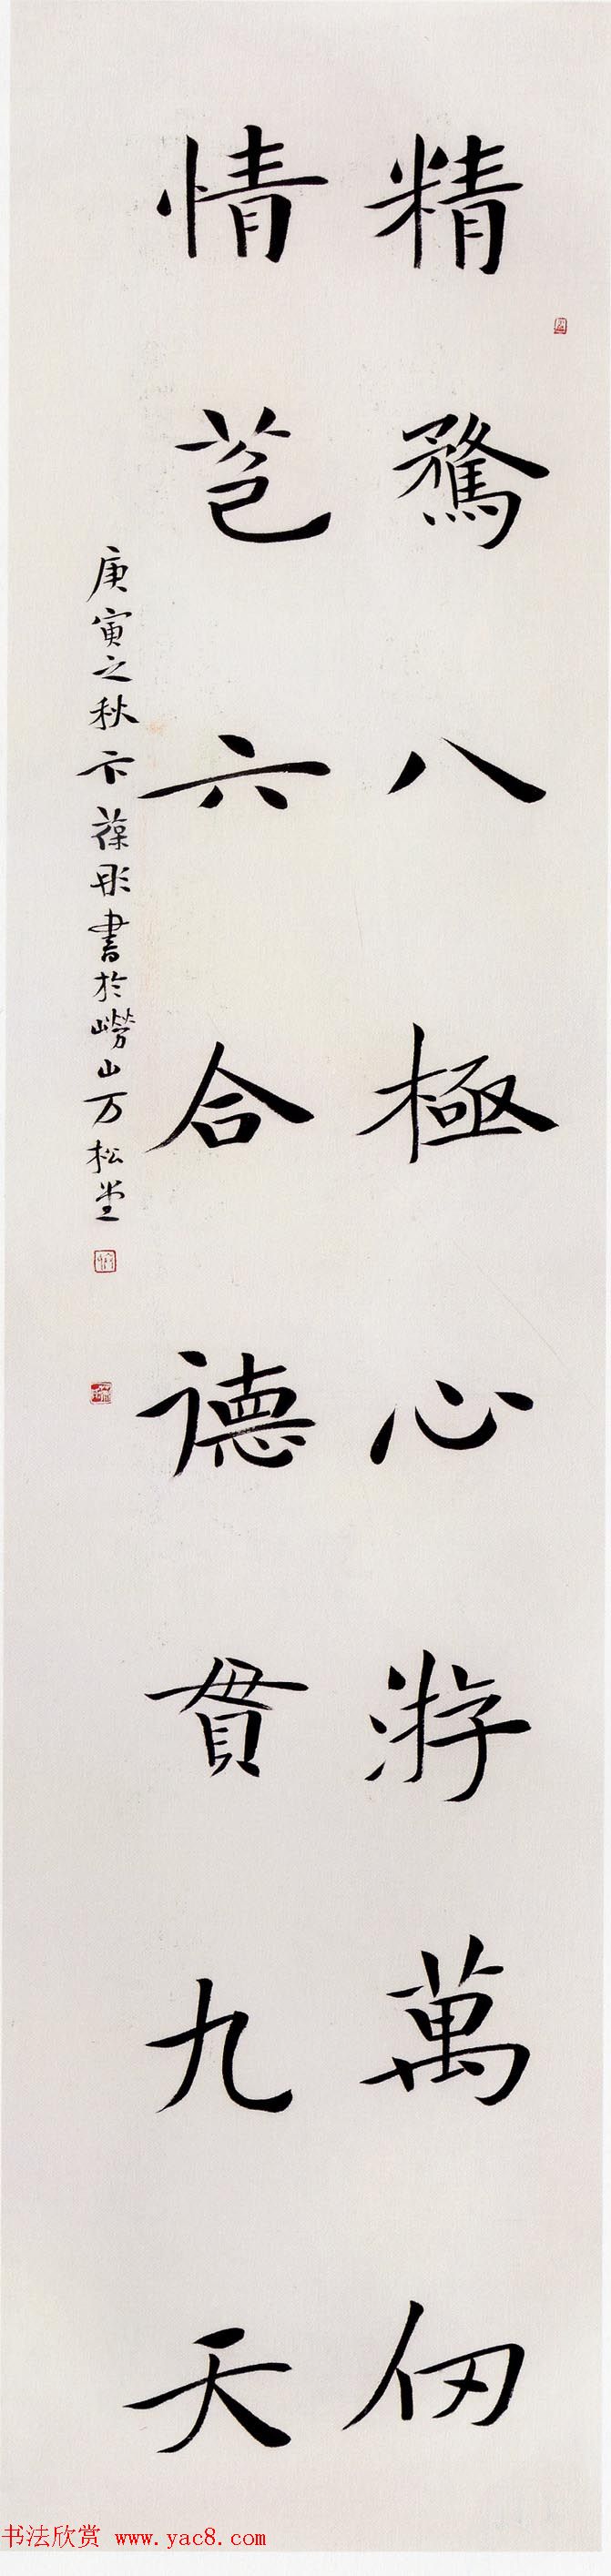 精騖八極心游萬仞
情苞六合德貫九天
庚寅之秋卞葆彤書於嶗山万松堂
书法欣赏 www.yac8.com